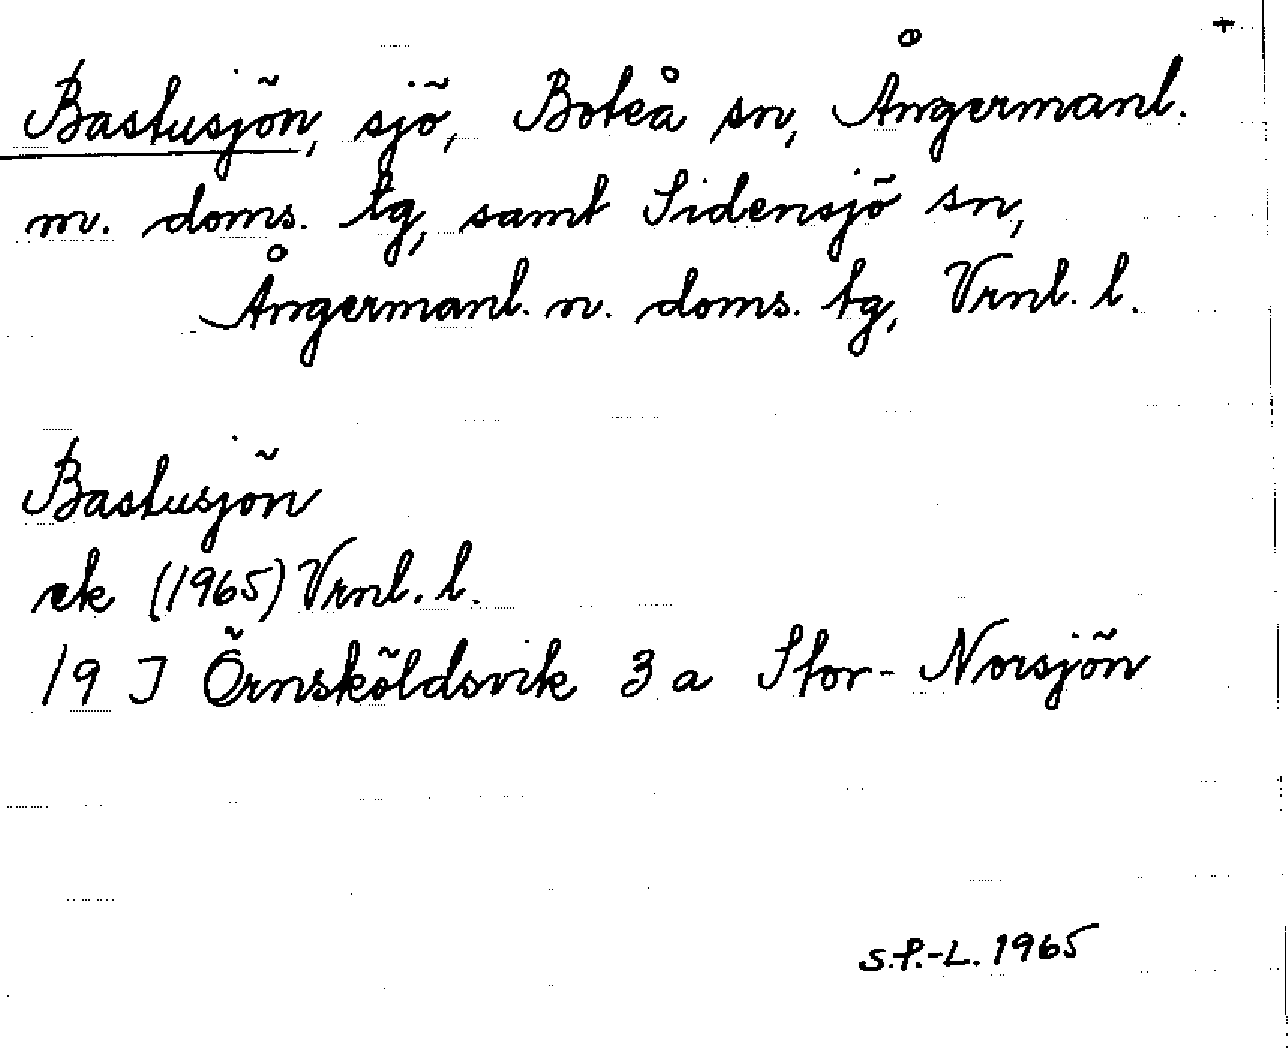 +
Bastusjön, sjö, Boteå sn, Ångermanl.
m. doms. tg, samt Sidensjö sn,
Ångermanl. n. doms. tg, Vrnl. l.
Bastusjön
ek (1965) Vrnl. l.
19 J Örnsköldsvik 3 a Stor-Norsjön
S.f.-L. 1965